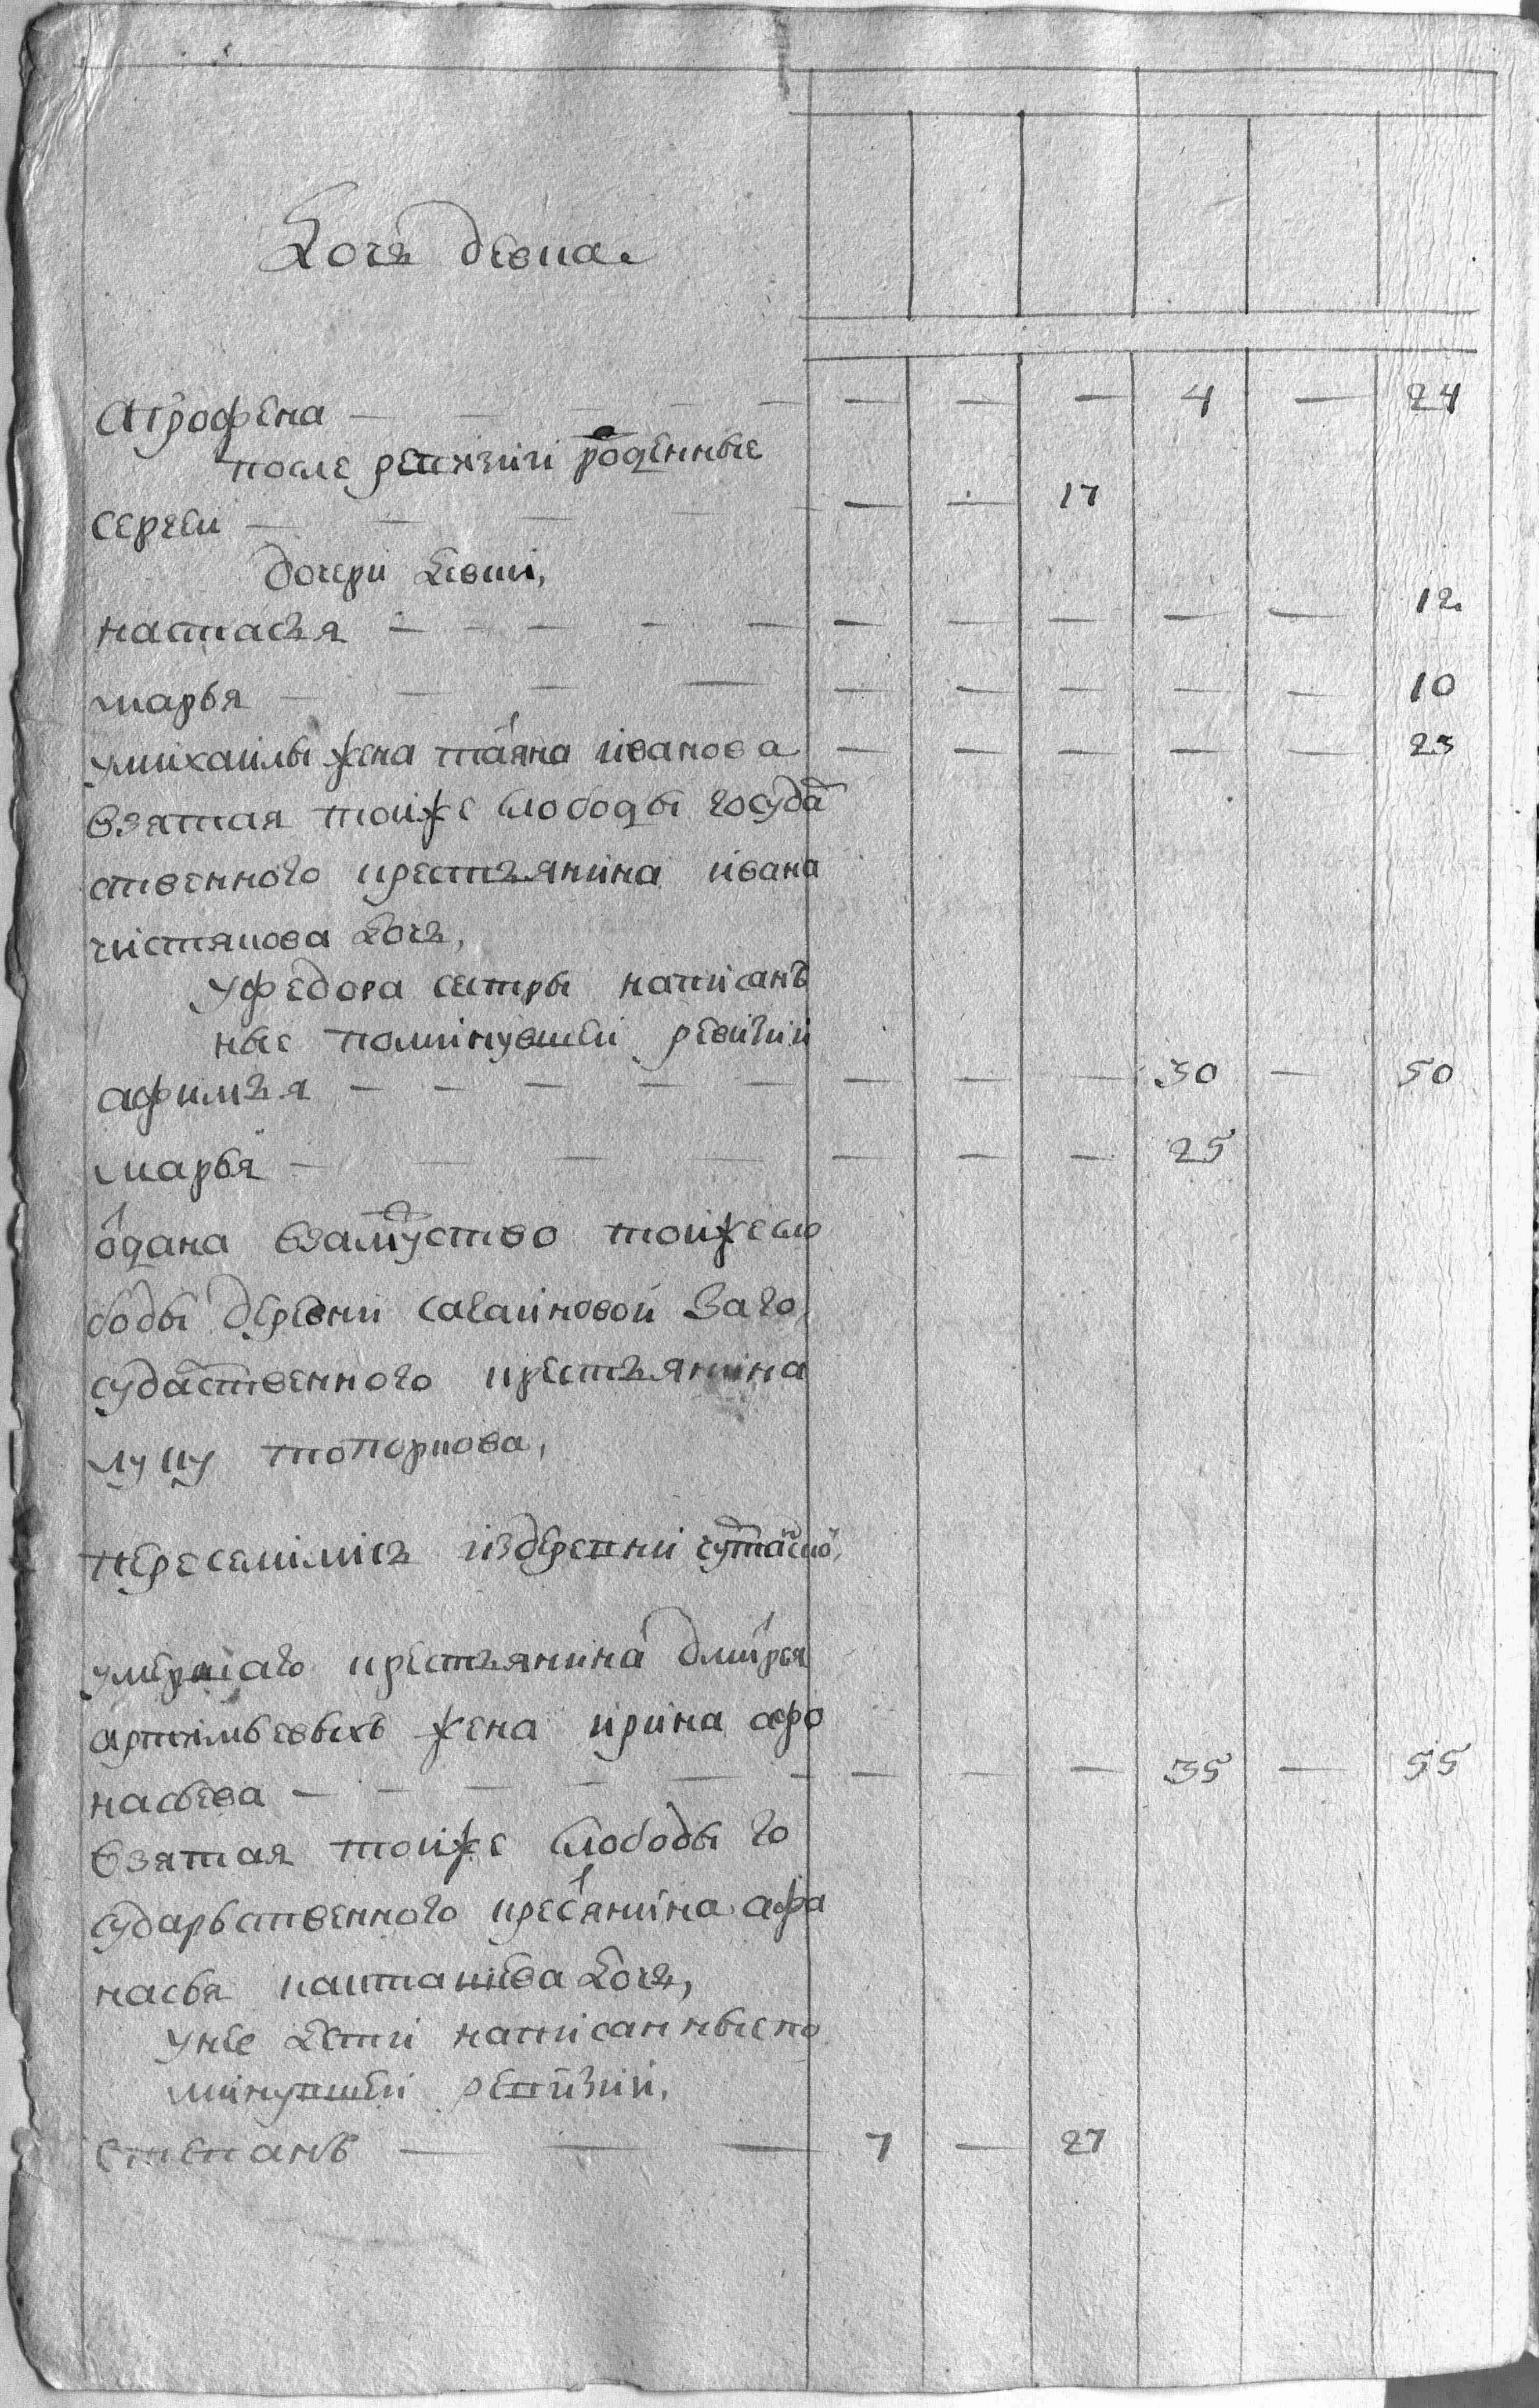 Дочь девка.
агрофена — — — — — — — — 4 — 24
после ревизии рожденные
сергеи — — — — — — — 17
дочери девки,
настасья — — — — — — — — — — 12
марья — — — — — — — — — 10
умихаилы жена татяна иванова — — — — — 23
взятая тоиже слободы госуда
ственного крестьянина ивана
чистякова дочь,
уфедора сестры написанъ
ные поминувшеи ревизии
афимья — — — — — — — — 30 — 50
марья — — — — — — — 25
одана взамуство тоижесло
боды деревни саваиновой заго
сударственного крестьянина
луку топоркова,
переселились издеревни
умершаго крестьянина дмитрея
артемьевыхъ жена ирина афо
насьева — — — — — — — — 35 — 55
взятая тоиже слободы го
сударьственного крестянина афа
насья капташева дочь,
унее дети написанныепо
минувшеи ревизии,
степанъ — — — 7 — 27